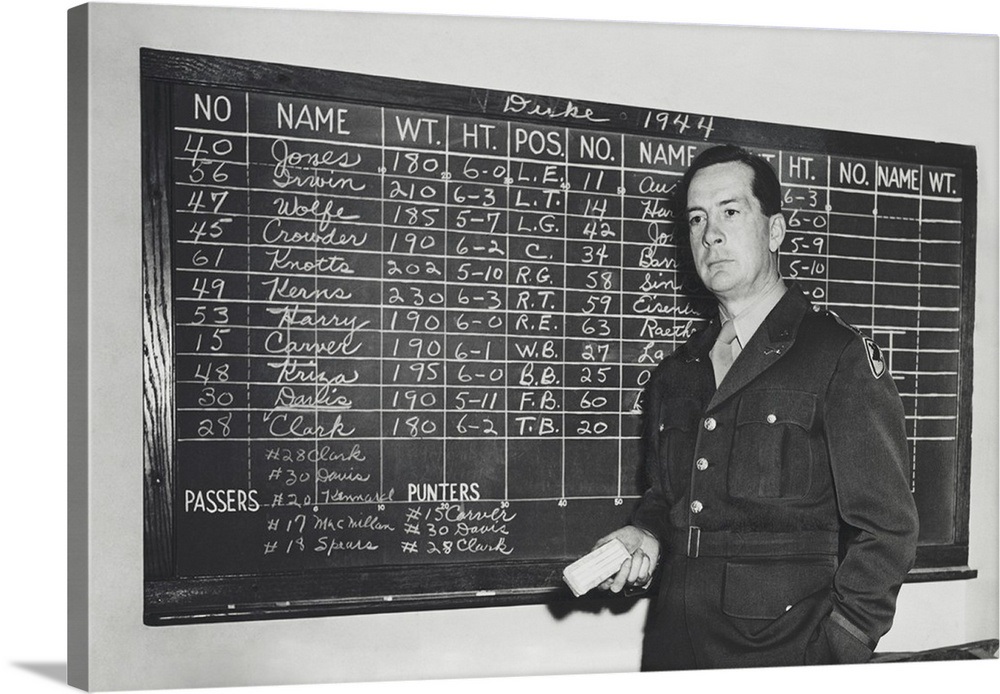 Duke 1944
NO NAME WT. HT. POS. NO. NAME HT. NO. NAME WT.
40 Jones 180 6-0 L.E. 11 6-3
56 Irwin 210 6-3 L.T. 14 6-0
47 Wolfe 185 5-7 L.G. 42 5-9
45 Crowder 190 6-2 C. 34 5-10
61 Knotts 202 5-10 R.G. 58
49 Kerns 230 6-3 R.T. 59
53 Harry 190 6-0 R.E. 63
15 Carver 190 6-1 W.B. 27
48 Kriza 195 6-0 B.B. 25
30 Davis 190 5-11 F.B. 60
28 Clark 180 6-2 T.B. 20
#28 Clark
#30 Davis
PASSERS #20 Kennard PUNTERS
#17 MacMillan #15 Carver
#18 Spears #30 Davis
#28 Clark